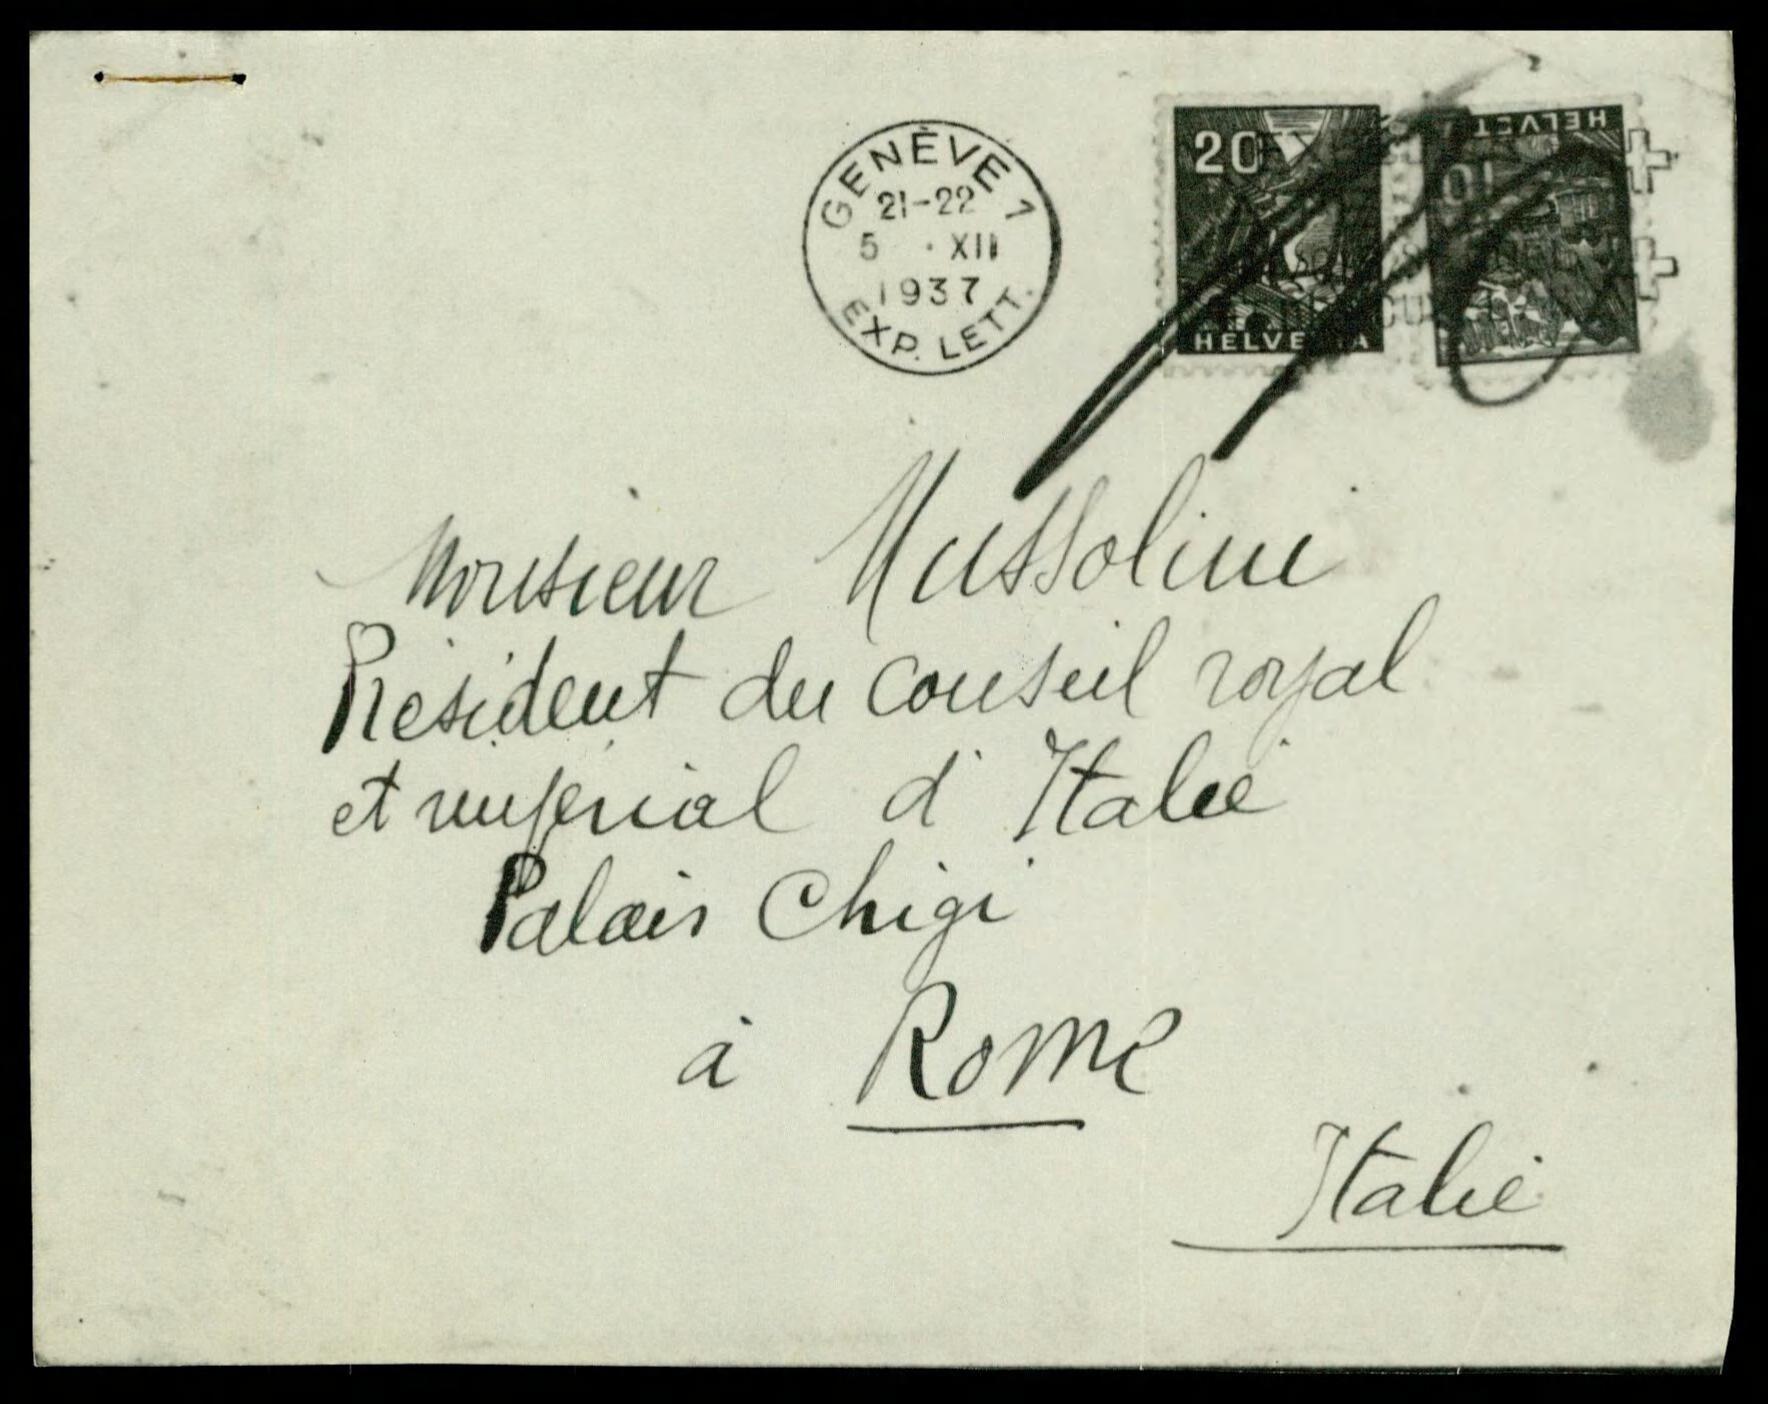 GENÈVE 1
21-22
5 · XII
1937
EXP. LETT.
20
HELVETIA
10
HELVETIA
Monsieur Mussolini
Président du Conseil royal
et impérial d'Italie
Palais Chigi
à Rome
Italie